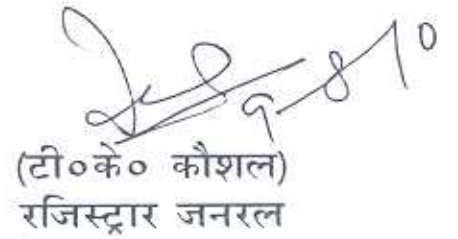 9-8-10
(टी०के० कौशल)
रजिस्ट्रार जनरल